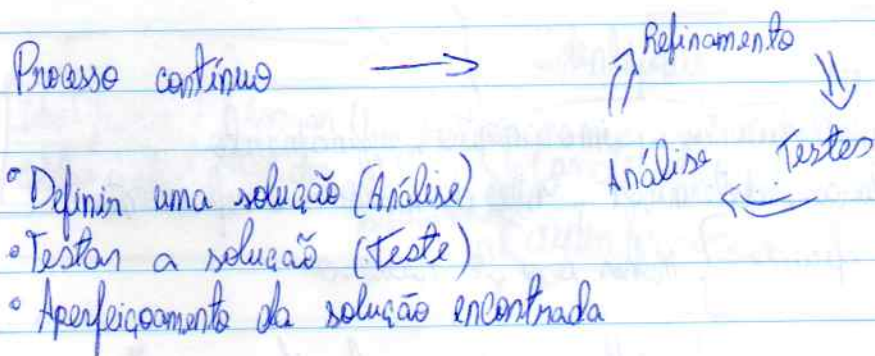 Processo contínuo → Refinamento
Análise Testes
° Definir uma solução (Análise)
° Testar a solução (Teste)
° Aperfeiçoamento da solução encontrada